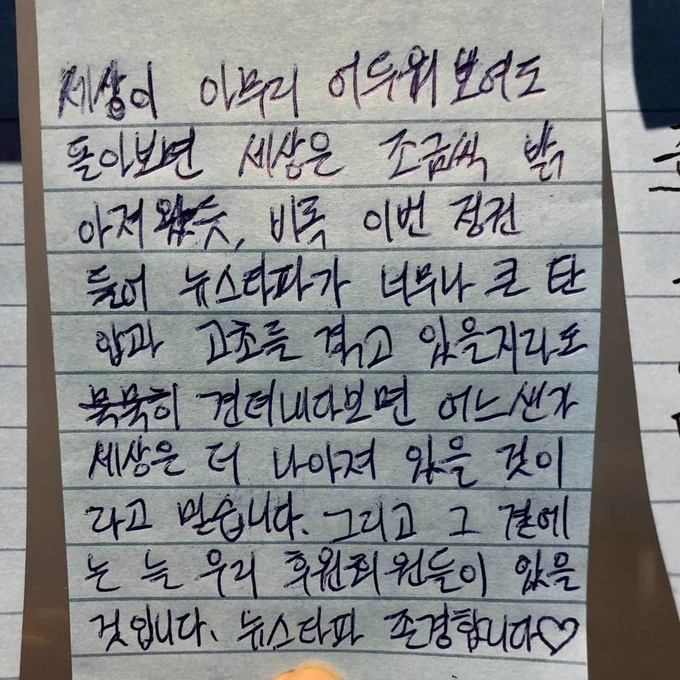 세상이 아무리 어두워 보여도
돌아보면 세상은 조금씩 밝
아져 왔듯, 비록 이번 정권
들어 뉴스타파가 너무나 큰 탄
압과 고초를 겪고 있을지라도
묵묵히 견뎌내다보면 어느샌가
세상은 더 나아져 있을 것이
라고 믿습니다. 그리고 그 곁에
는 늘 우리 후원회원들이 있을
것입니다. 뉴스타파 존경합니다♡